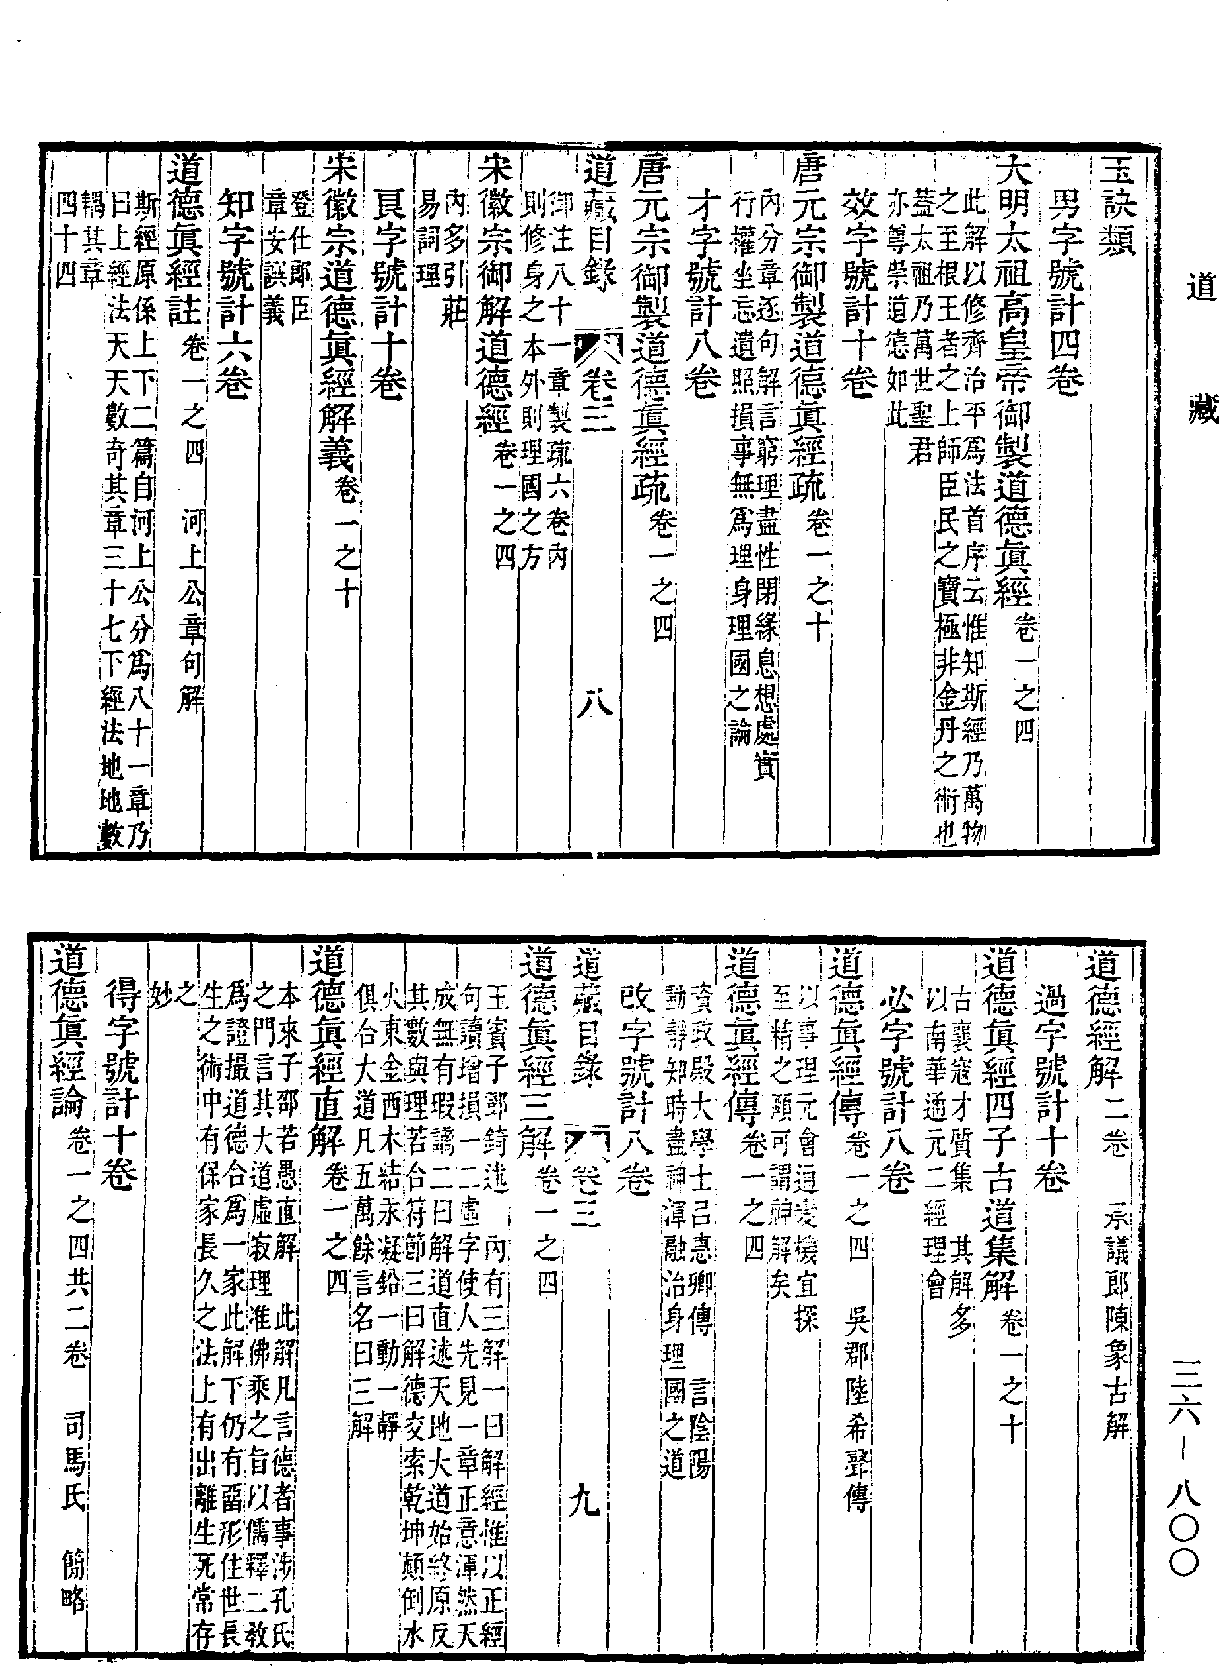 道藏
玉訣類
男字號計四卷
大明太祖高皇帝御製道德眞經卷一之四
此解以修齊治平爲法首序云惟知斯經乃萬物
之至根王者之上師臣民之寶極非金丹之術也
蓋太祖乃萬世聖君
亦尊崇道德如此
效字號計十卷
唐元宗御製道德眞經疏卷一之十
內分章逐句解言窮理盡性閉緣息想處實
行權坐忘遺照損事無爲理身理國之論
才字號計八卷
唐元宗御製道德眞經疏卷一之四
道藏目錄 卷三 八
御注八十一章製疏六卷內
則修身之本外則理國之方
宋徽宗御解道德經卷一之四
內多引莊
易詞理
良字號計十卷
宋徽宗道德眞經解義卷一之十
登仕郎臣
章安誤義
知字號計六卷
道德眞經註卷一之四 河上公章句解
斯經原係上下二篇自河上公分爲八十一章乃
曰上經法天天數奇其章三十七下經法地地數
耦其章
四十四
道德經解二卷 承議郎陳象古解
過字號計十卷
道德眞經四子古道集解卷一之十
古襄寇才質集 其解多
以南華通元二經理會
必字號計八卷
道德眞經傳卷一之四 吳郡陸希聲傳
以事理元會通变機宜探
至精之賾可謂神解矣
道德眞經傳卷一之四
資政殿大學士呂惠卿傳 言陰陽
動靜知時盡神渾融治身理國之道
改字號計八卷
道藏目錄 卷三 九
道德眞經三解卷一之四
玉賓子鄧錡述 內有三解一曰解經惟以正經
句讀增損一二虛字使人先見一章正意渾然天
成無有瑕謫二曰解道直述天地大道始終原反
其數與理若合符節三曰解德交索乾坤顛倒水
火東金西木結汞凝鉛一動一靜
俱合大道凡五萬餘言名曰三解
道德眞經直解卷一之四
本來子邵若愚直解 此解凡言德者事涉孔氏
之門言其大道虛寂理准佛乘之旨以儒釋二敎
爲證撮道德合爲一家此解下仍有畱形住世長
生之術中有保家長久之法上有出離生死常存
之
妙
得字號計十卷
道德眞經論卷一之四共二卷 司馬氏 簡略
三六－八〇〇